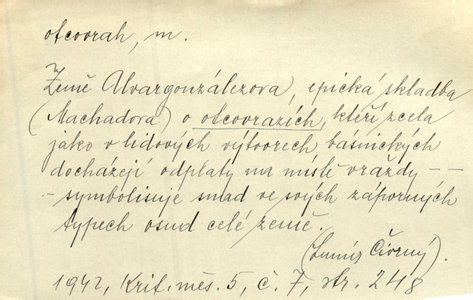 otcovrah, m.
Země Alvargonzálezova, epická skladba
(Machadova) o otcovrazích, kteří zcela
jako v lidových výtvorech básnických
docházejí odplaty na místě vraždy --
- symbolisuje snad ve svých záporných
typech osud celé země.
(Lumír Čivrný).
1942, Krit. měs. 5, č. 7, str. 248